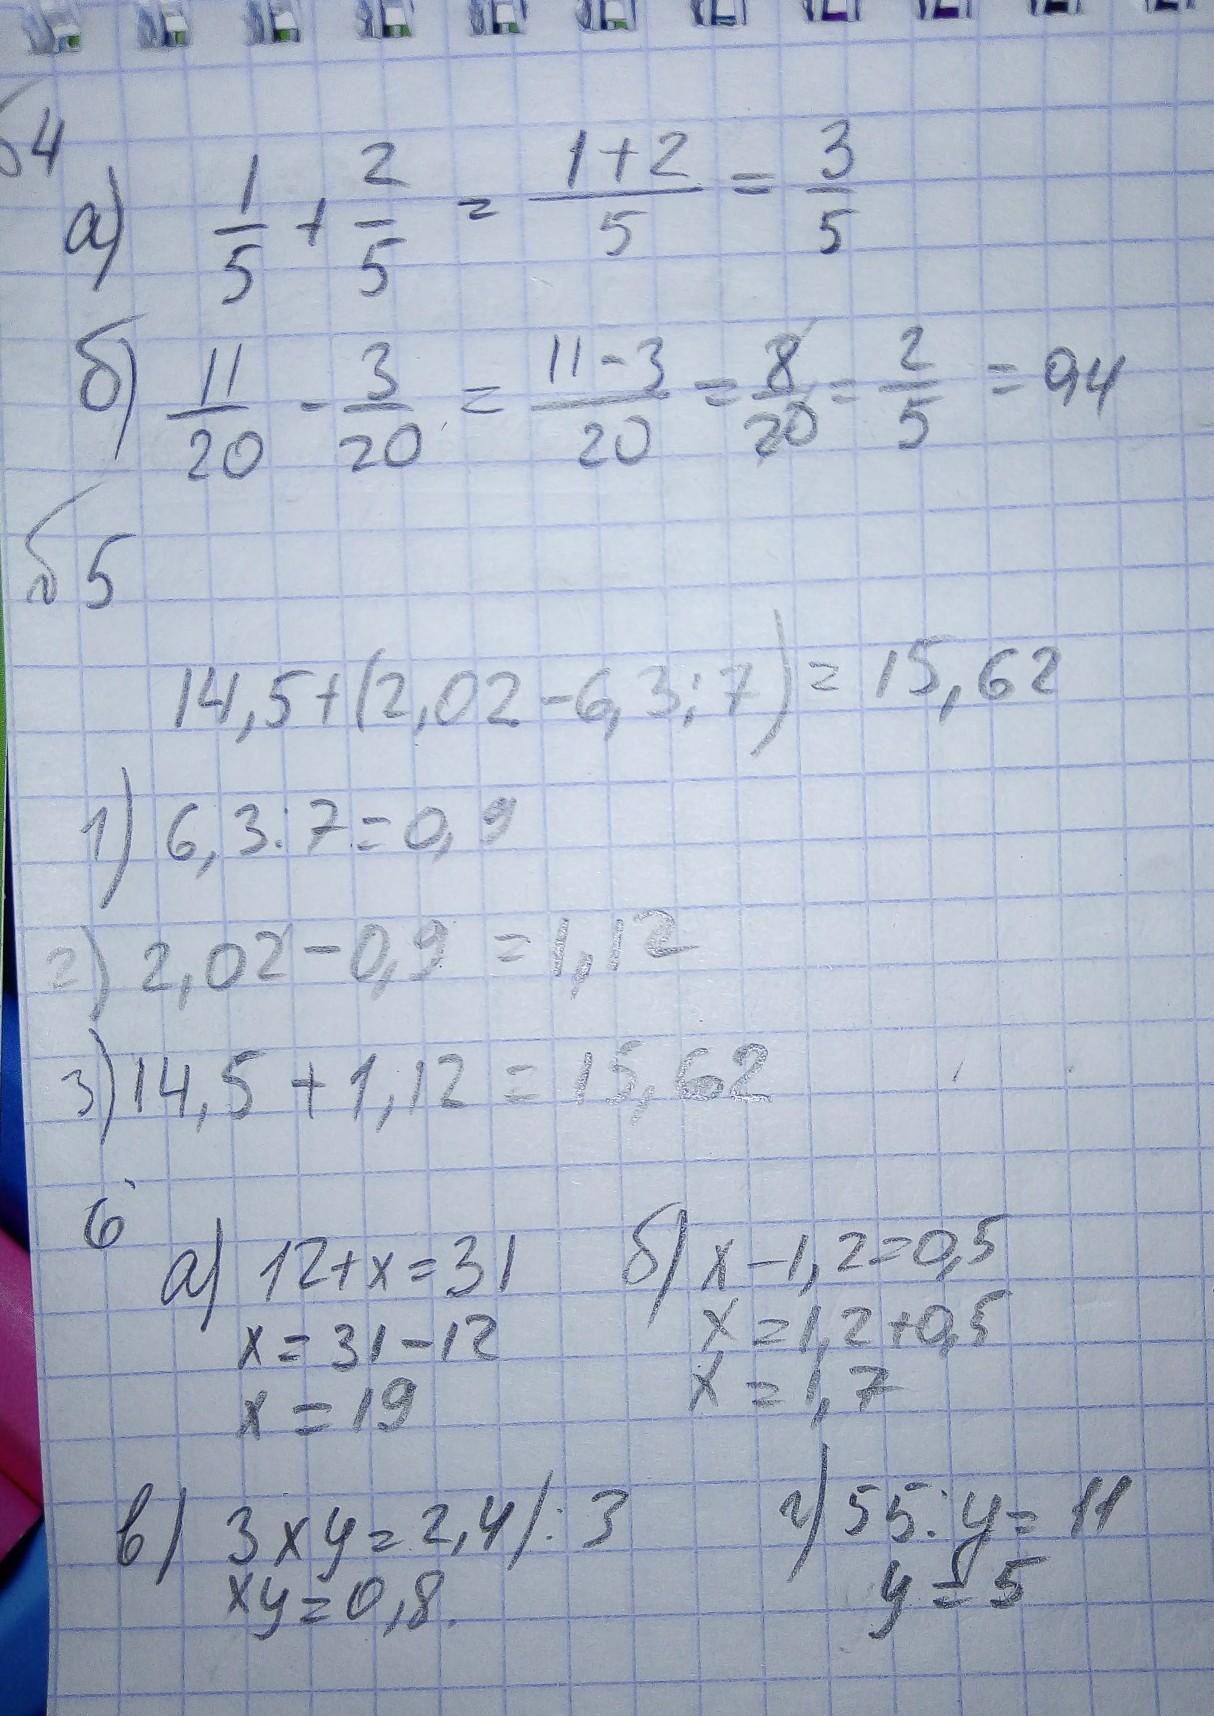 №4
а) 1/5 + 2/5 = (1+2)/5 = 3/5
б) 11/20 - 3/20 = (11-3)/20 = 8/20 = 2/5 = 0,4
№5
14,5+(2,02-6,3:7)=15,62
1) 6,3:7=0,9
2) 2,02-0,9=1,12
3) 14,5+1,12=15,62
6
а) 12+x=31
x=31-12
x=19
б) x-1,2=0,5
x=1,2+0,5
x=1,7
в) 3xy=2,4/:3
xy=0,8.
г) 55:y=11
y=5